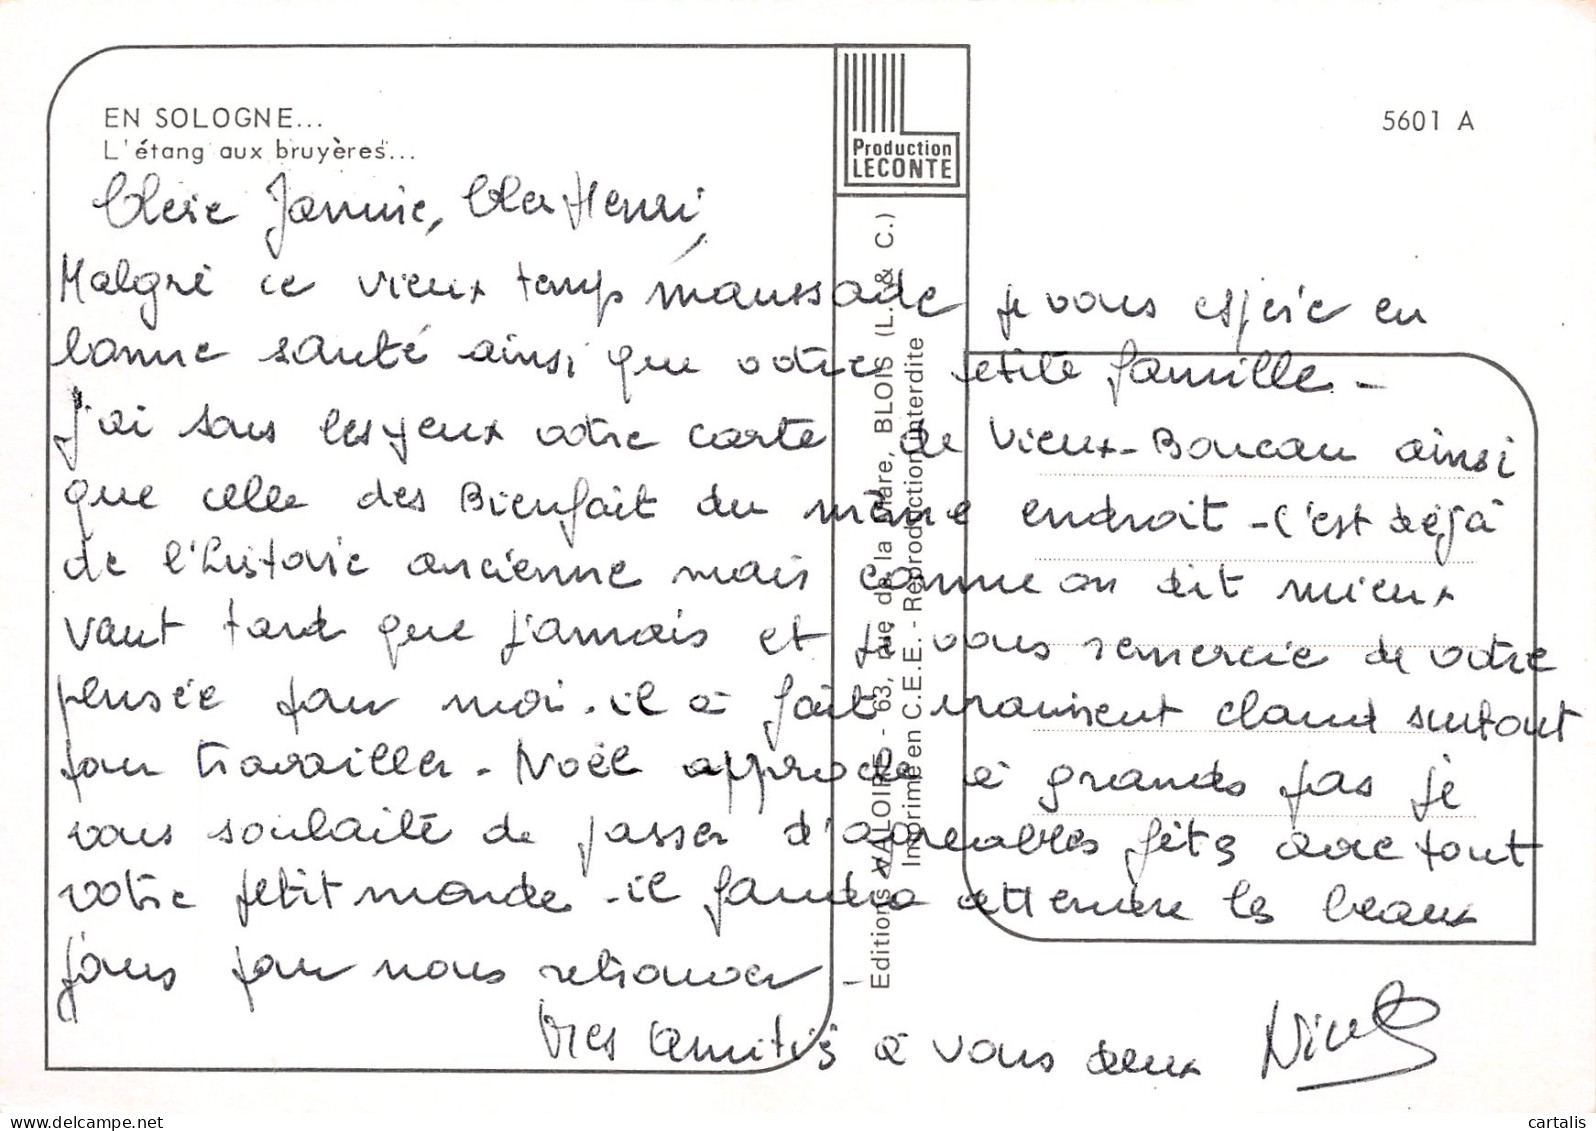 EN SOLOGNE...
L'étang aux bruyères...
5601 A
Production
LECONTE
Editions VALOIRE - 63, rue de la Mare, BLOIS (L. & C.)
Imprimé en C.E.E. - Reproduction interdite
Chère Jannie, Cher Henri,
Malgré ce vieux temps maussade je vous espère en
bonne santé ainsi que votre petite famille -
J'ai sous les yeux votre carte de Vieux-Boucau ainsi
que celle des Bienfait du même endroit - C'est déjà
de l'histoire ancienne mais comme on dit mieux
vaut tard que jamais et je vous remercie de votre
pensée pour moi. il a fait vraiment chaud surtout
pour travailler - Noël approche à grands pas je
vous souhaite de passer d'agréables fêtes avec tout
votre petit monde - il faudra attendre les beaux
jours pour nous retrouver -
Mes amitiés à vous deux Nicole